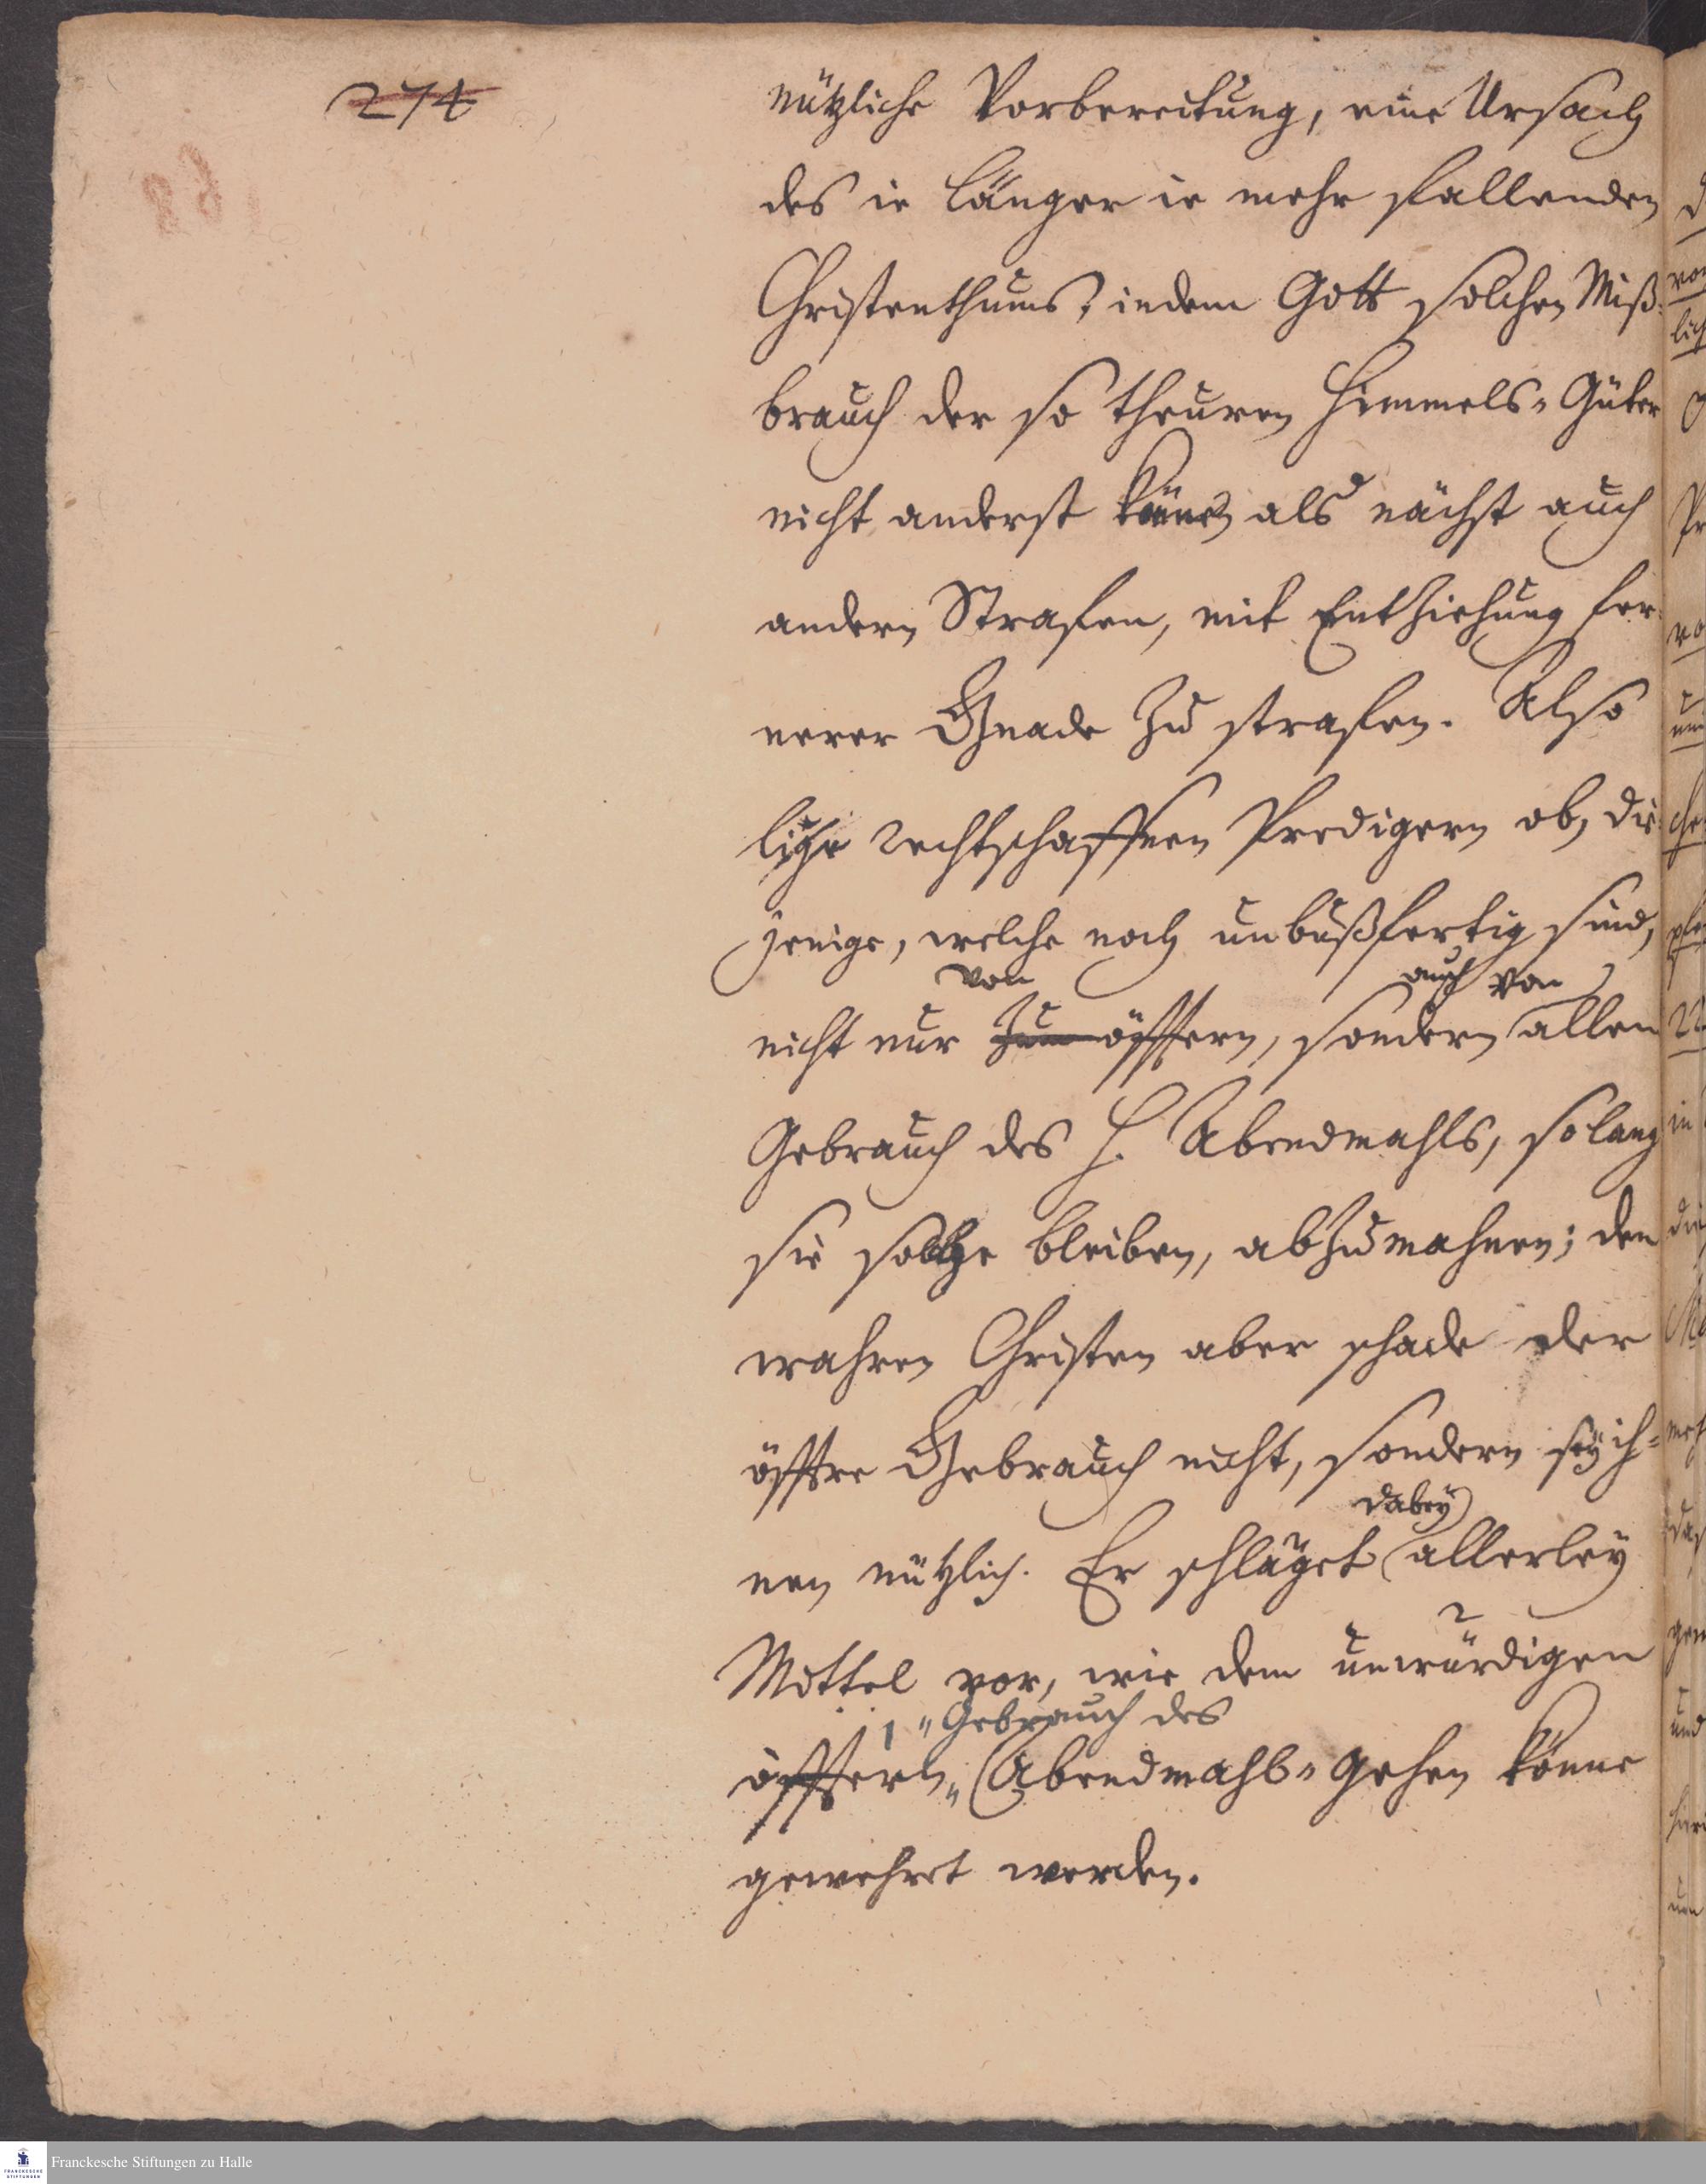 274
nützliche Vorbereitung, eine Ursach
des ie länger ie mehr fallenden
Christenthums, indem Gott solchen Miß-
brauch der so theuren Himmels-Güter
nicht anderst könne, als nächst auch
andern Strafen, mit Entziehung fer-
nerer Gnade zu strafen. Also
lige rechtschaffnen Predigern ob, die-
jenige, welche noch unbußfertig sind,
von auch von
nicht nur zum öfftern, sondern allen
Gebrauch des H. Abendmahls, so lang
sie solche bleiben, abzumahnen; den
wahren Christen aber schade der
öfftre Gebrauch nicht, sondern sey ih-
dabey
nen nützlich. Er schläget allerley
2
Mittel vor, wie dem unwürdigen
1 " Gebrauch des
öfftern " Abendmahl-gehen könne
gewehret werden.
Franckesche Stiftungen zu Halle